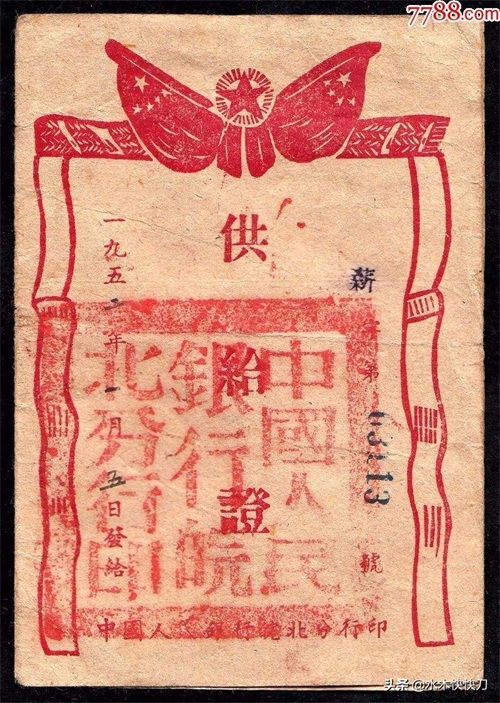 7788.com
供給證
薪字第 63113 號
中國人民
銀行皖
北分行印
一九五二年一月五日發給
中國人民銀行皖北分行印
头条@水木快快刀